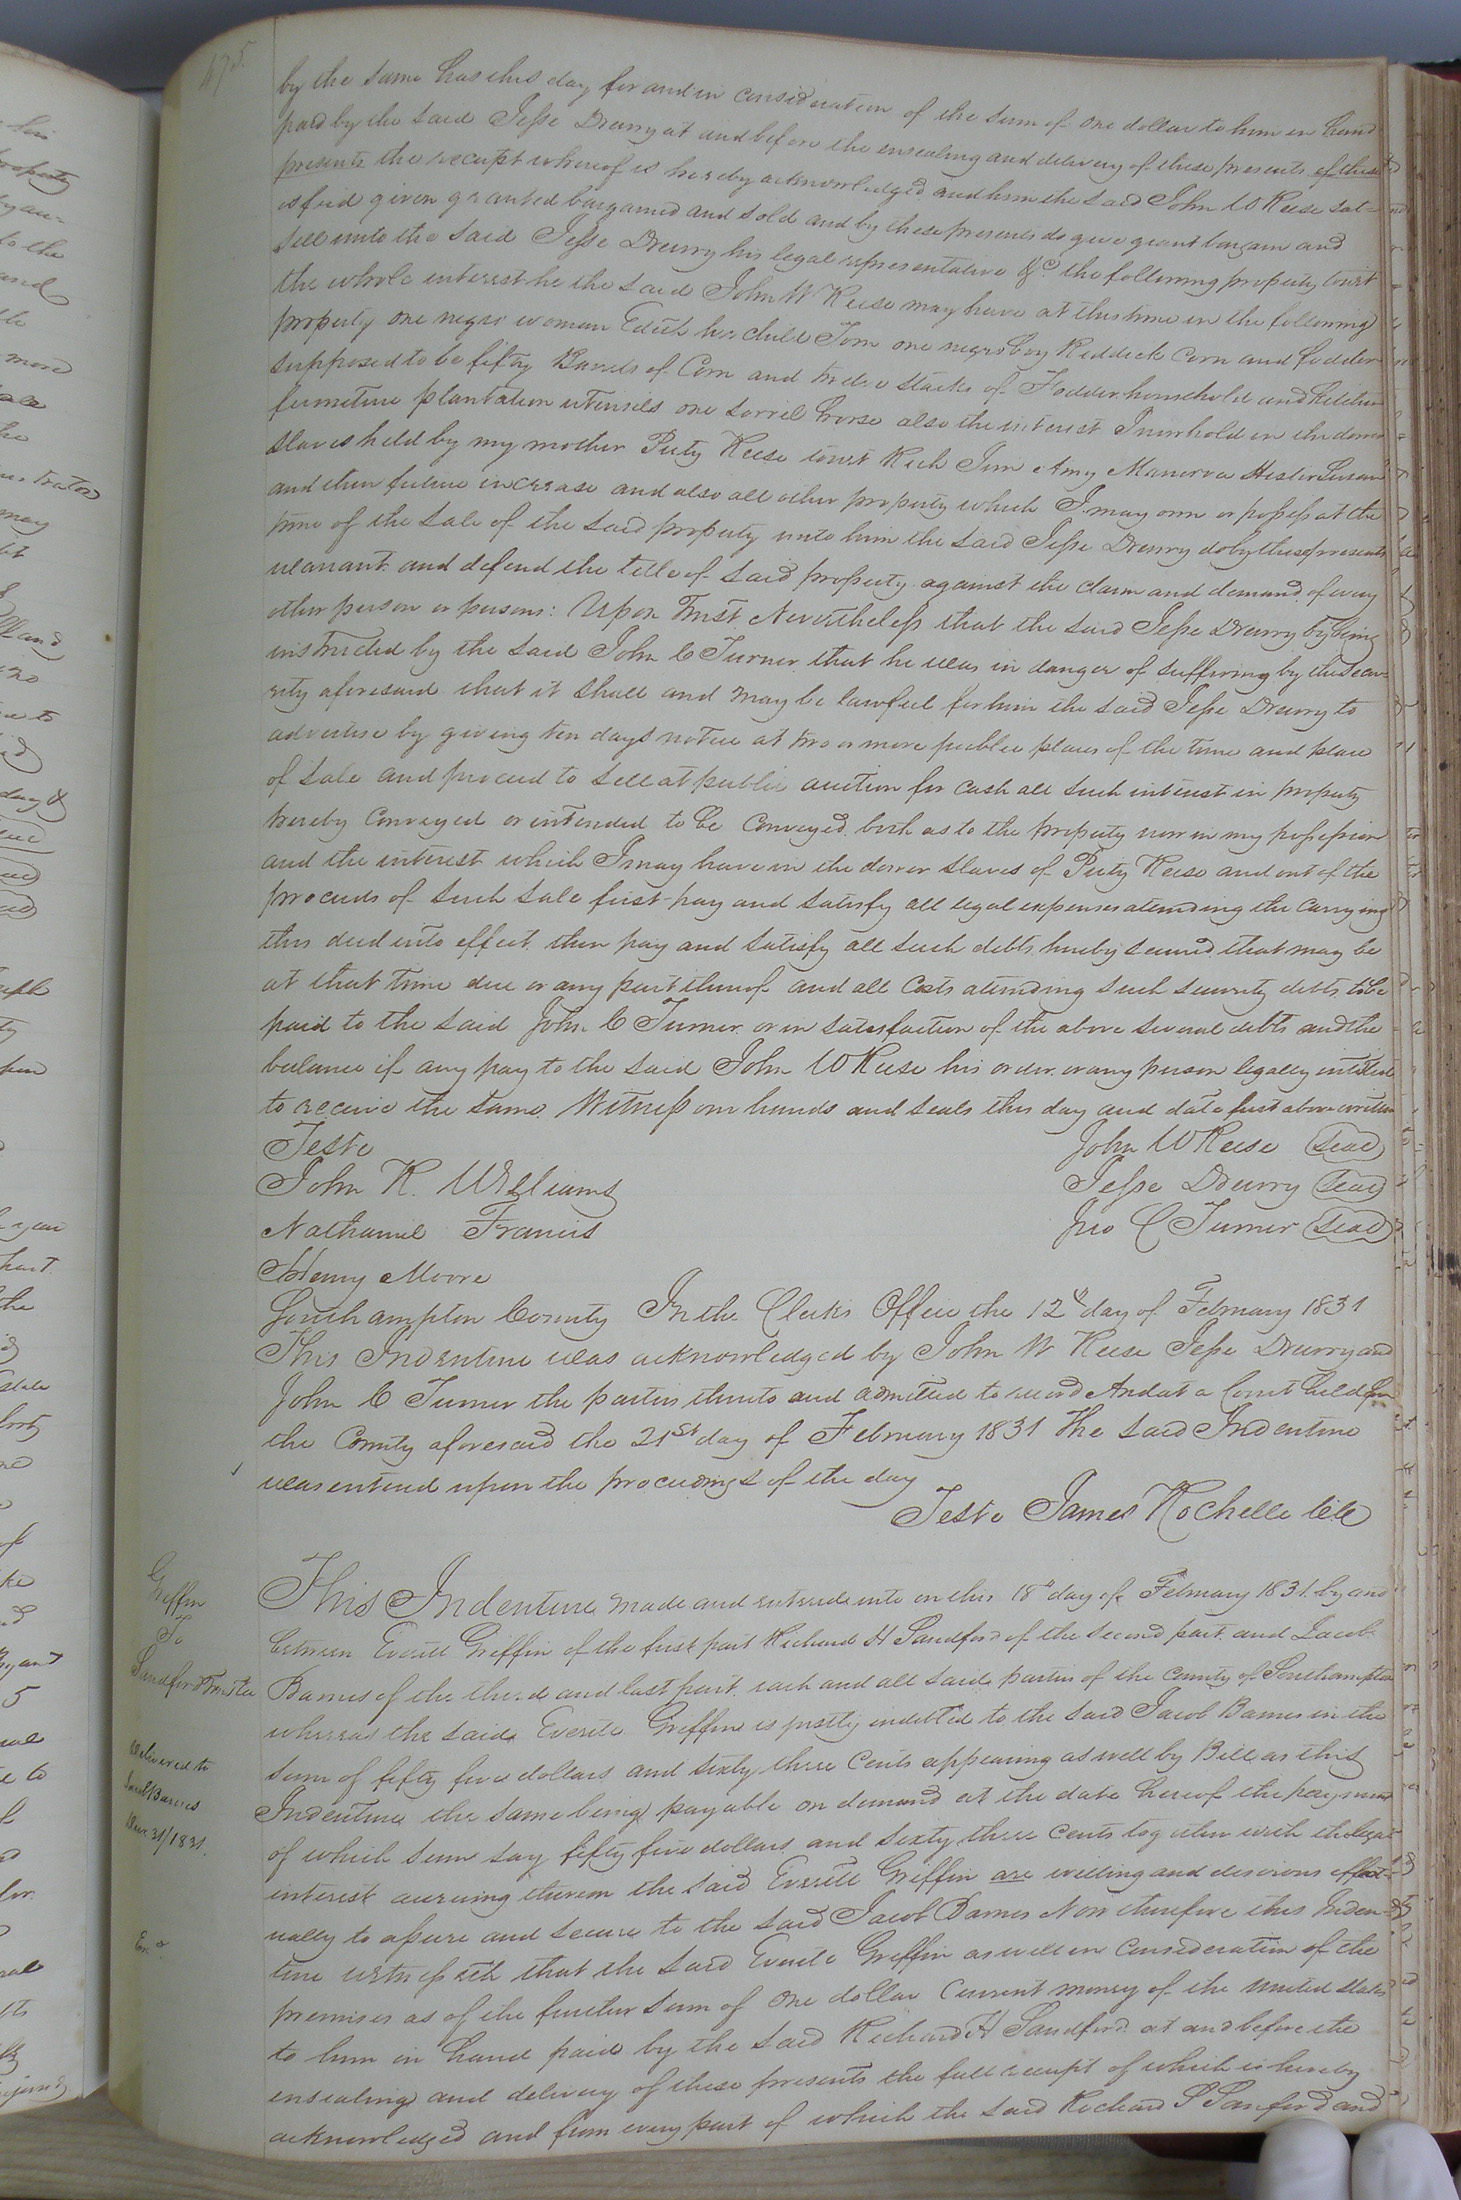 475
by the same has this day for and in consideration of the sum of one dollar to him in hand
paid by the said Jesse Drewry at and before the ensealing and delivery of these presents of these
presents the receipt whereof is hereby acknowledged and him the said John W Reese sat=
isfied given granted bargained and sold and by these presents do give grant bargain and
sell unto the said Jesse Drewry his legal representative &c the following property towit
the whole interest he the said John W Reese may have at this time in the following
property one negro woman Edith her child Tom one negro boy Reddick Corn and fodder
supposed to be fifty Barrels of Corn and twelve stacks of Fodder household and Kitchen
furniture plantation utensils one sorrel horse also the interest I now hold in the dower
slaves held by my mother Piety Reese towit Rich Jim Amy Manerva Hester Susan
and their future increase and also all other property which I may own or possess at the
time of the sale of the said property unto him the said Jesse Drewry do by these presents
warrant and defend the title of said property against the claim and demand of every
other person or persons: Upon Trust Nevertheless that the said Jesse Drewry by being
instructed by the said John C Turner that he was in danger of suffering by the Secu-
rity aforesaid that it shall and may be lawful for him the said Jesse Drewry to
advertise by giving ten days notice at two or more public places of the time and place
of sale and proceed to sell at public auction for cash all such interest in property
hereby conveyed or intended to be conveyed both as to the property now in my possession
and the interest which I may have in the dower slaves of Piety Reese and out of the
proceeds of such sale first pay and satisfy all legal expenses attending the carrying
this deed into effect then pay and satisfy all such debts hereby secured that may be
at that time due or any part thereof and all costs attending such security debts to be
paid to the said John C Turner or in satisfaction of the above several debts and the
balance if any pay to the said John W Reese his order or any person legally intitled
to receive the same Witness our hands and seals this day and date first above written
Teste John W Reese Seal
John R. Williams Jesse Drewry Seal
Nathaniel Francis Jno C Turner Seal
Henry Moore
Southampton County In the Clerks Office the 12th day of February 1831
This Indenture was acknowledged by John W Reese Jesse Drewry and
John C Turner the parties thereto and admitted to record And at a Court held for
the County aforesaid the 21st day of February 1831 The said Indenture
was entered upon the proceedings of the day
Teste James Rochelle Clk
Griffin
To
Sandford Trustee
Delivered to
Jacob Barnes
31/1831.
This Indenture made and entered into on this 18th day of February 1831 by and
between Everitt Griffin of the first part Richard H Sandford of the second part and Jacob
Barnes of the third and last part each and all said parties of the County of Southampton
whereas the said Everitt Griffin is justly indebted to the said Jacob Barnes in the
sum of fifty five dollars and sixty three cents appearing as well by Bill as this
Indenture the same being payable on demand at the date hereof the payment
of which sum say fifty five dollars and sixty three cents together with the legal
interest accruing thereon the said Everitt Griffin are willing and desirous effect-
ually to assure and secure to the said Jacob Barnes Now therefore this Inden-
ture witnesseth that the said Everitt Griffin as well in consideration of the
premises as of the further sum of one dollar current money of the United States
to him in hand paid by the said Richard H Sandford at and before the
ensealing and delivery of these presents the full receipt of which is hereby
acknowledged and from every part of which the said Richard Sanford and